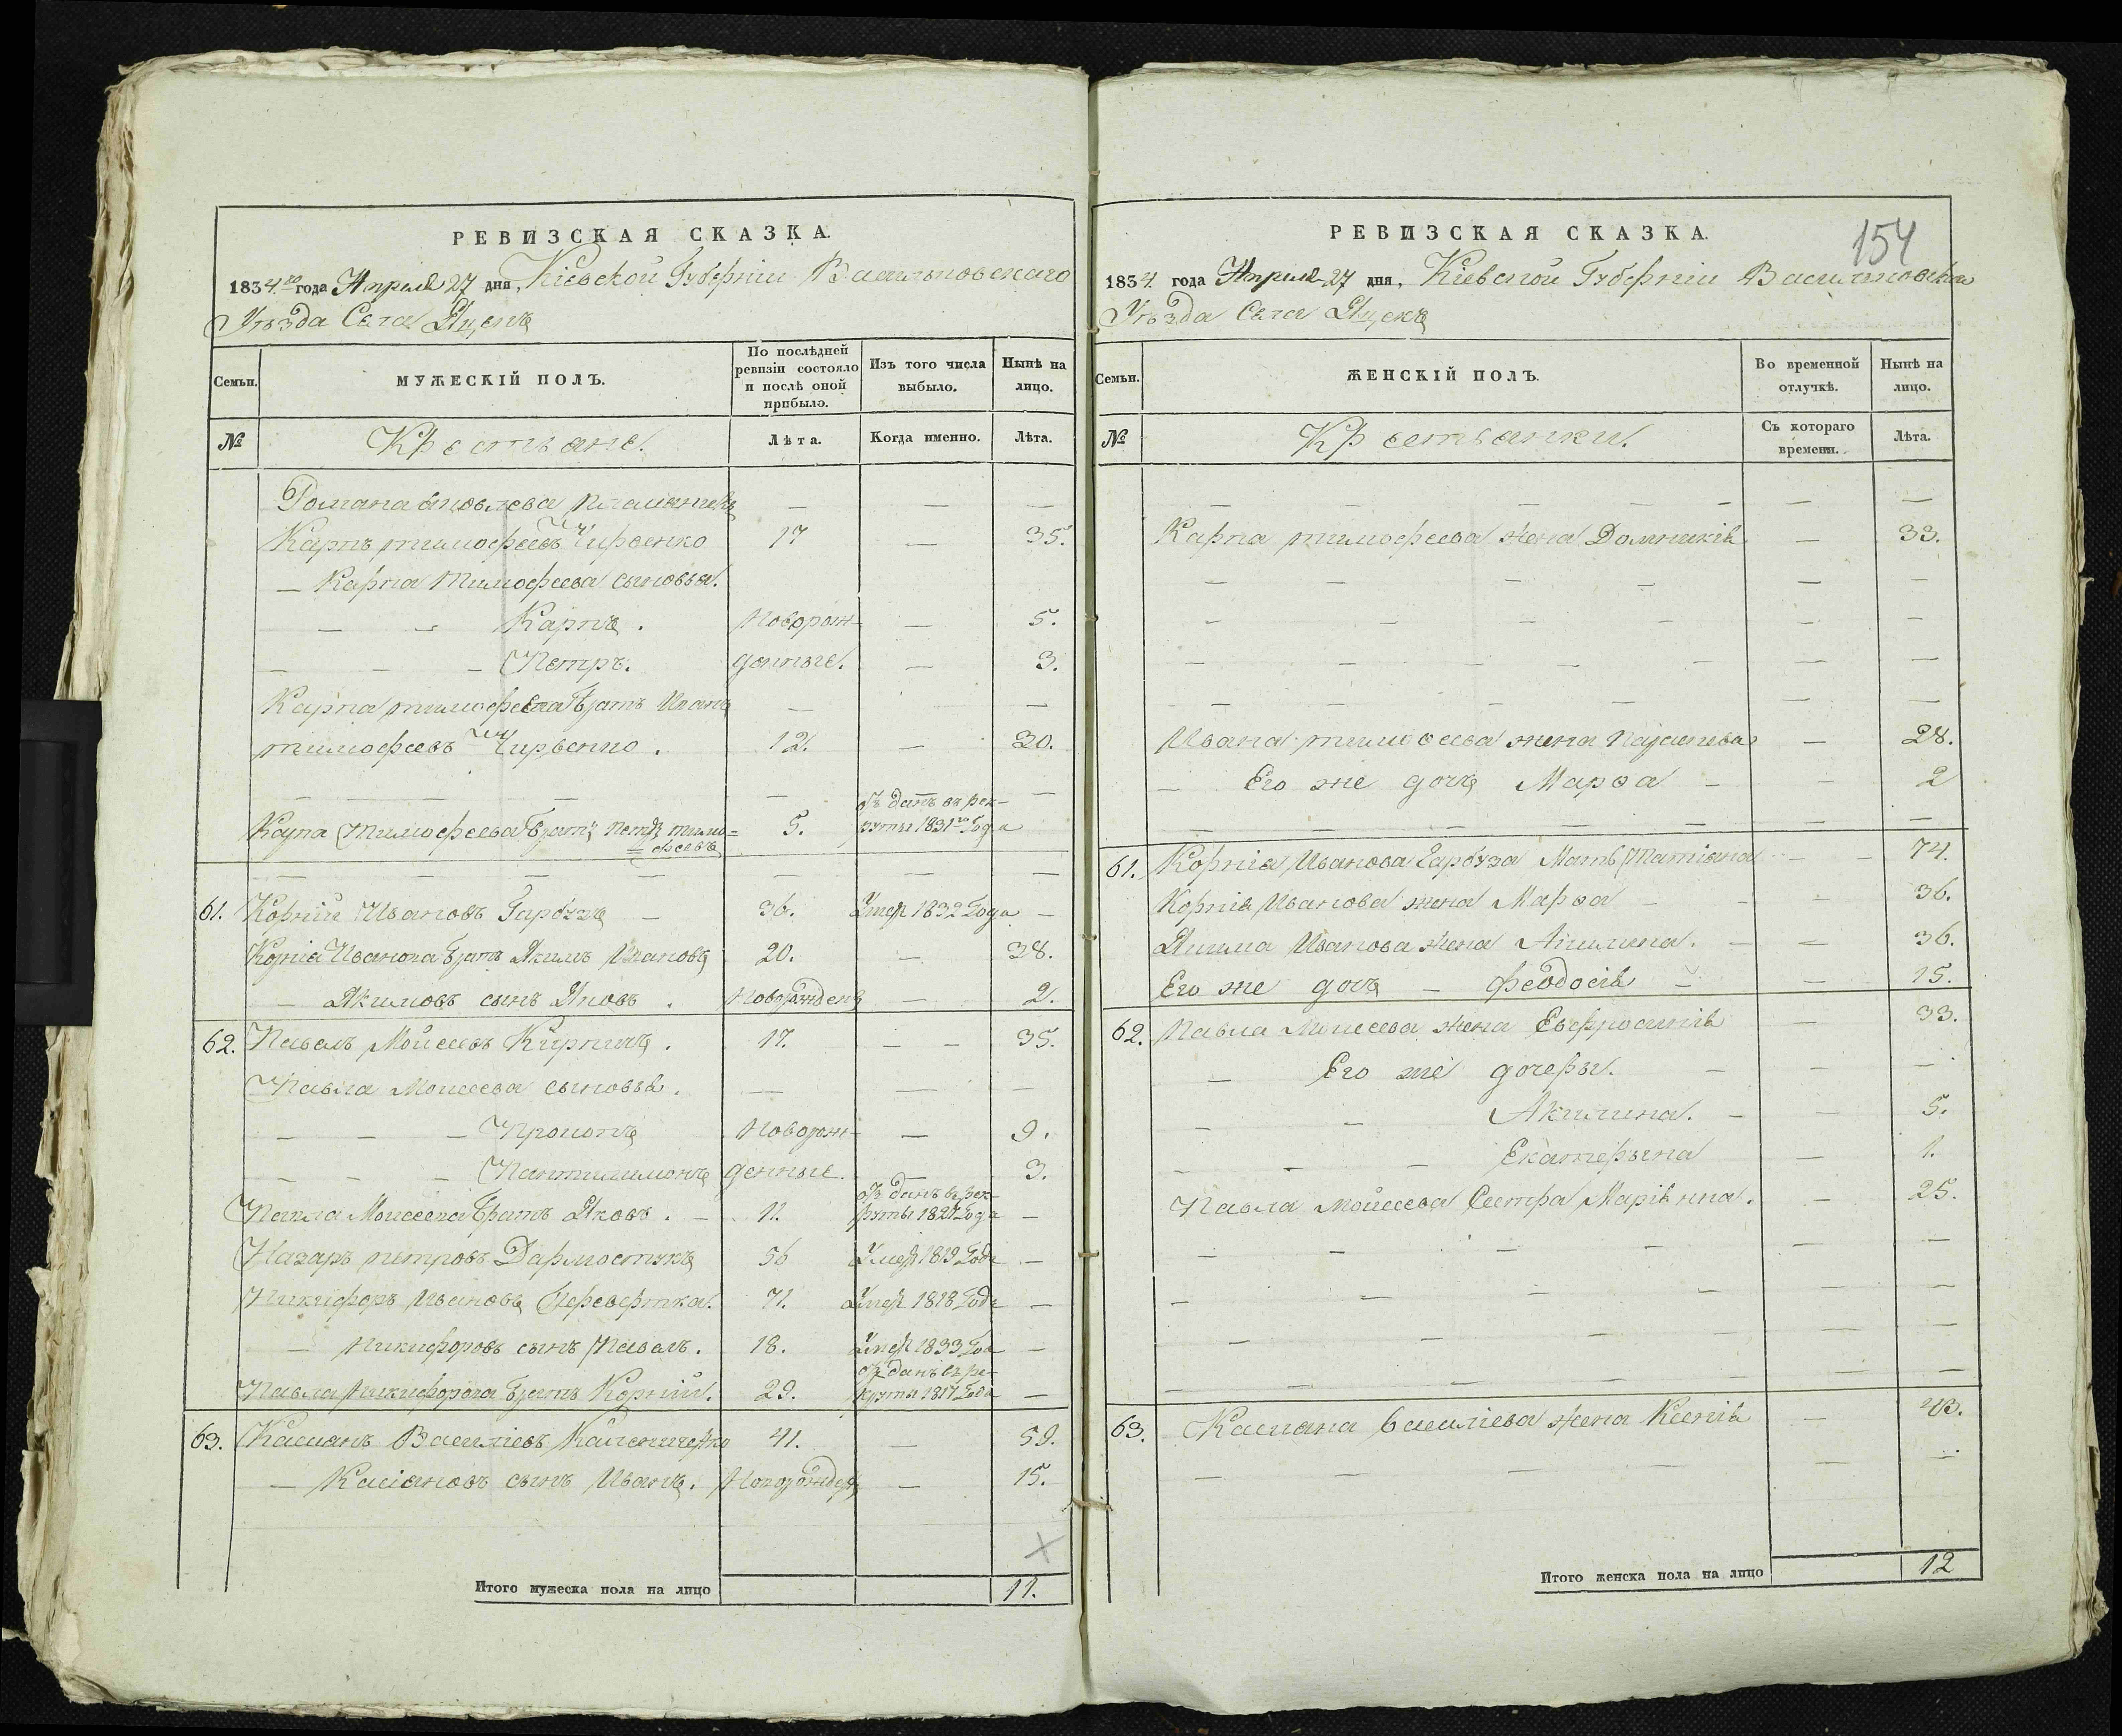 РЕВИЗСКАЯ СКАЗКА.
1834го года Апреля 27 дня, Кіевской Губерніи Васильковскаго
Уѣзда Села
Семьи.
МУЖЕСКІЙ ПОЛЪ.
По послѣдней ревизіи состояло и послѣ оной прибыло.
Изъ того числа выбыло.
Нынѣ на лицо.
№
Крестьяне.
Лѣта.
Когда именно.
Лѣта.
Романа Яковлева племянникъ — — —
Карпъ тимофеевъ Чирвенко 17 — 35.
— Карпа Тимофеева сыновья.
— — Карпъ. Новорож- — 5.
— — — Петръ. денные. — 3.
Карпа тимофеева братъ Иванъ — —
тимофеевъ Чирвенко. 12. — 30.
Карпа Тимофеева братъ Петръ тимо= 5. отъ данъ въ рек-
=феевъ руты 1831го Года
61. Корній Ивановъ Гарбузъ — 36. Умер 1832 Года —
Корнія Иванова братъ Якимъ Ивановъ 20. — 38.
— Якимовъ сынъ Яковъ. Новорожденъ — 2.
62. Павелъ Мойсеевъ Кирпичъ. 17. — — 35.
Павла Моисеева сыновья. — — —
— — — Прокопъ Новорож- — 9.
— — — Пантилимонъ денные. — 3.
Павла Моисеева братъ Яковъ. — 11. отъ данъ въ рек-
руты 1827 Года —
Назаръ петровъ Дармостукъ 56 Умер 1819 Года —
Никифоръ Ивановъ Перевертка. 71. Умер 1818 Года —
— Никифоровъ сынъ Павелъ. 18. Умер 1833 Го —
Павла Никифорова братъ Корній. 29. отъ данъ въ ре-
круты 1817 Года —
63. Касіанъ Василіевъ Калениченко 41. — 59.
— Касіановъ сынъ Иванъ. Новорожденъ — 15.
Итого мужеска пола на лицо 11.
154
РЕВИЗСКАЯ СКАЗКА.
1834 года Апреля 27 дня, Кіевской Губерніи Васильковскаго
Уѣзда Села
Семьи.
ЖЕНСКІЙ ПОЛЪ.
Во временной отлучкѣ.
Нынѣ на лицо.
№
Крестьянки.
Съ котораго времени.
Лѣта.
Карпа тимофеева жена Домникія — 33.
Ивана тимофеева жена — 28.
— Его же дочь Марѳа — — 2
61. Корнія Иванова Гарбуза Мать Татіана — — 74.
Корнія Иванова жена Марѳа — — 36.
Якима Иванова жена Акилина. — — 36.
Его же дочь — Феодосія — — 15.
62. Павла Моисеева жена Евфросинія — 33.
— Его же дочеры. — — —
— — Акилина. — — 5.
— — — Екатерына — 1.
Павла Мойсеева Сестра Маріянна. — 25.
63. Касиана Василіева жена Ксенія — 43.
Итого женска пола на лицо 12